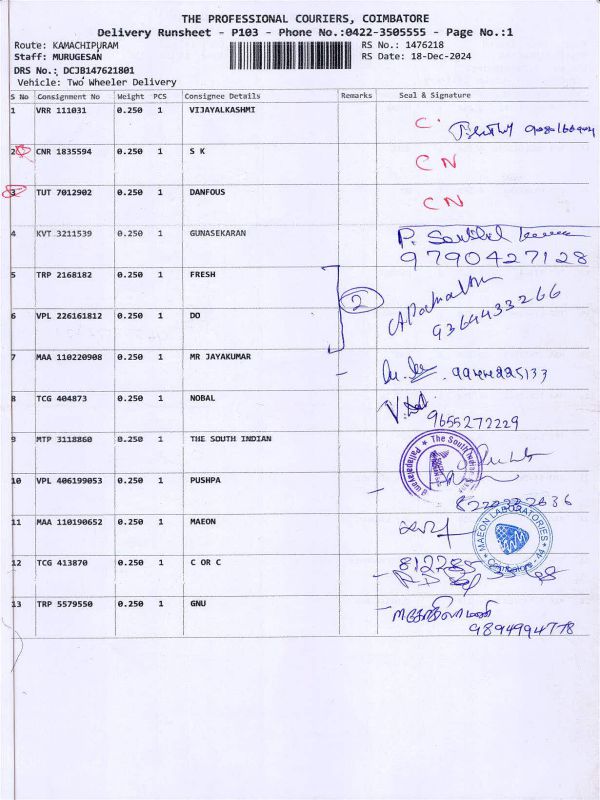 THE PROFESSIONAL COURIERS, COIMBATORE
Delivery Runsheet - P103 - Phone No.:0422-3505555 - Page No.:1
Route: KAMACHIPURAM RS No.: 1476218
Staff: MURUGESAN RS Date: 18-Dec-2024
DRS No.: DCJB147621801
Vehicle: Two Wheeler Delivery
S No Consignment No Weight PCS Consignee Details Remarks Seal & Signature
1 VRR 111031 0.250 1 VIJAYALKASHMI C.
2 CNR 1835594 0.250 1 S K CN
3 TUT 7012902 0.250 1 DANFOUS CN
4 KVT 3211539 0.250 1 GUNASEKARAN P.
9790427128
5 TRP 2168182 0.250 1 FRESH
2
6 VPL 226161812 0.250 1 DO 9364433266
7 MAA 110220908 0.250 1 MR JAYAKUMAR
8 TCG 404873 0.250 1 NOBAL
9655272229
9 MTP 3118860 0.250 1 THE SOUTH INDIAN The South Indian
10 VPL 406199053 0.250 1 PUSHPA
11 MAA 110190652 0.250 1 MAEON MAEON LABORATORIES
Coimbatore - 44
12 TCG 413870 0.250 1 C OR C
13 TRP 5579550 0.250 1 GNU
9894994778